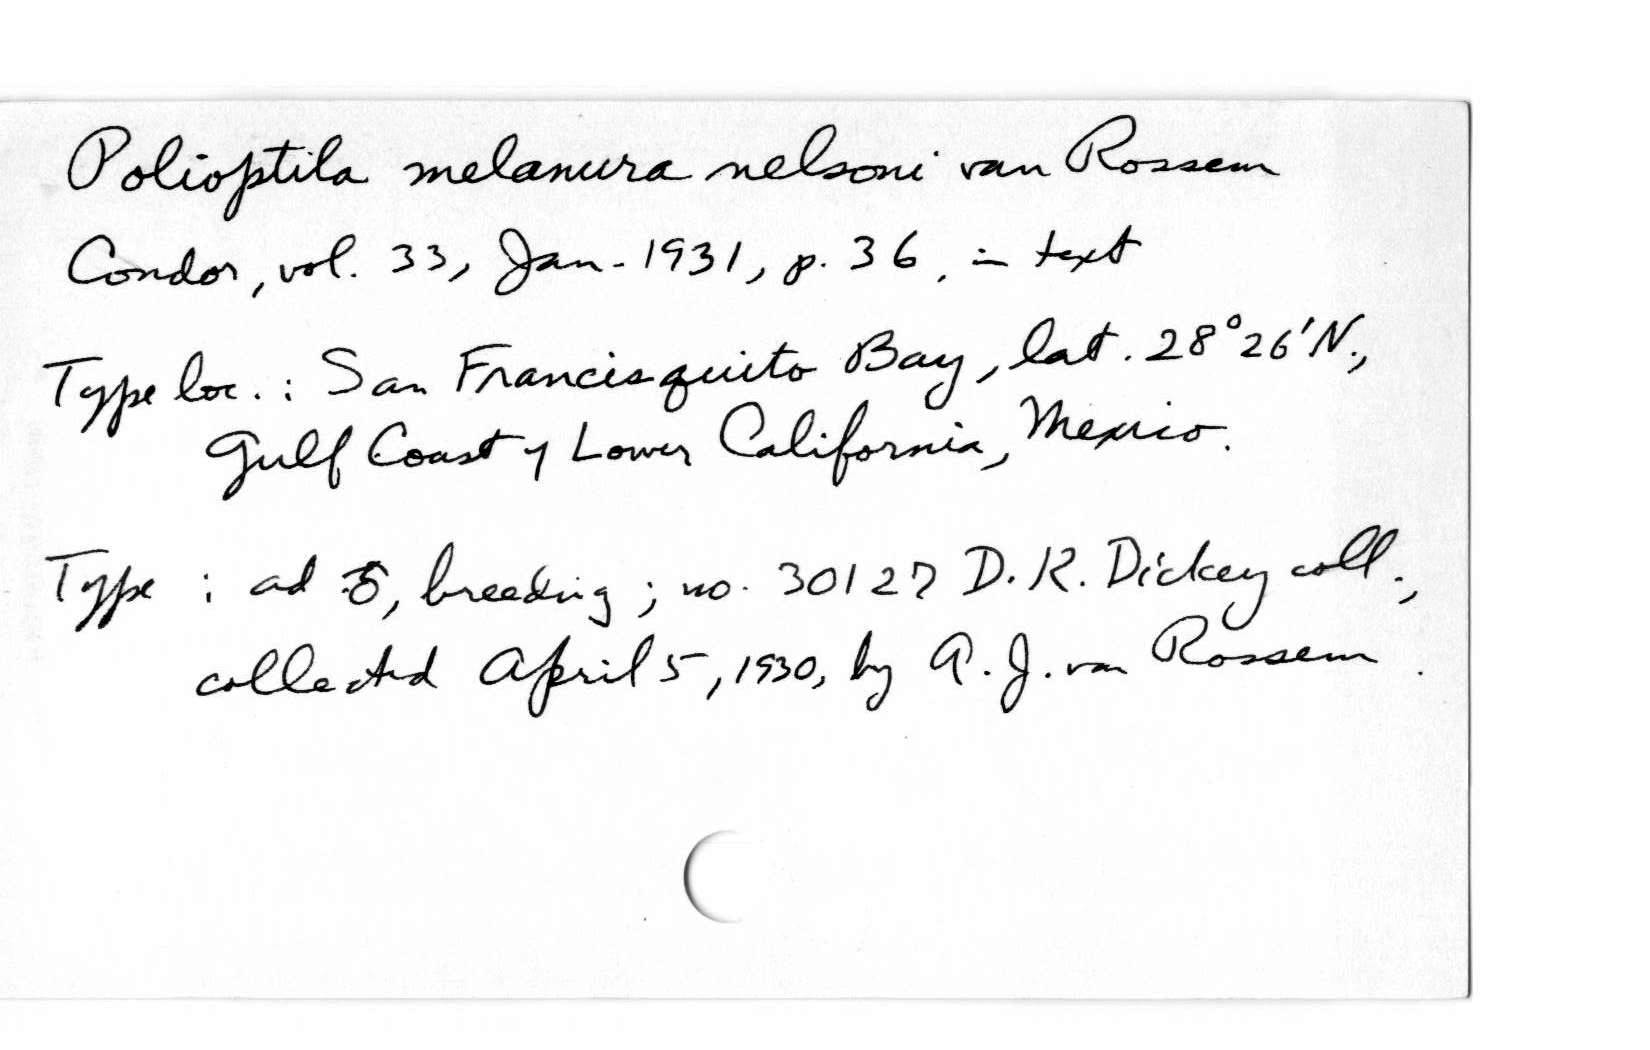 Polioptila melanura nelsoni van Rossem
Condor, vol. 33, Jan. 1931, p. 36, in text
Type loc.: San Francisquito Bay, lat. 28°26'N.,
Gulf Coast of Lower California, Mexico.
Type : ad ♂, breeding; no. 30127 D. R. Dickey coll.,
collected April 5, 1930, by A. J. van Rossem.